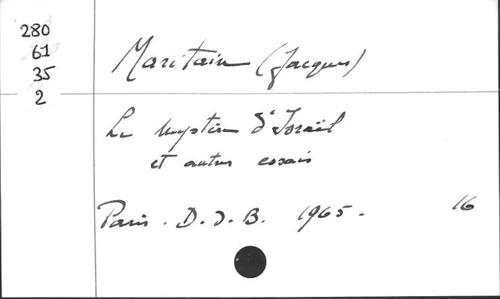 280
61
35
2
Maritain (Jacques)
Le mystère d'Israël
et autres essais
Paris. D.D.B. 1965.
16